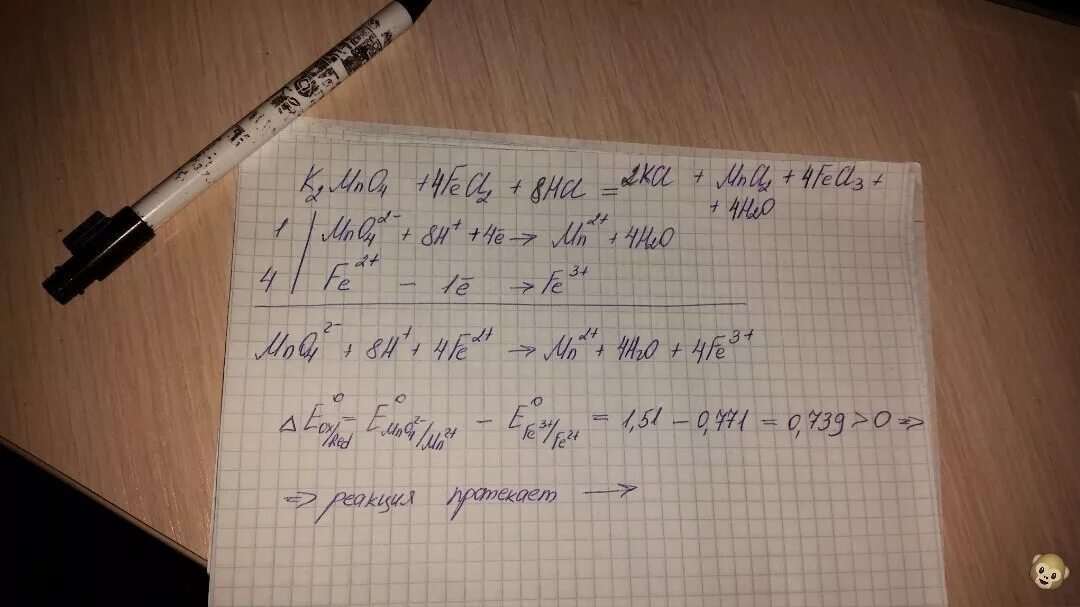 K₂MnO₄ + 4FeCl₂ + 8HCl = 2KCl + MnCl₂ + 4FeCl₃ +
+ 4H₂O
1 | MnO₄²⁻ + 8H⁺ + 4ē → Mn²⁺ + 4H₂O
4 | Fe²⁺ – 1ē → Fe³⁺
MnO₄²⁻ + 8H⁺ + 4Fe²⁺ → Mn²⁺ + 4H₂O + 4Fe³⁺
ΔE⁰ox/Red = E⁰MnO₄²⁻/Mn²⁺ – E⁰Fe³⁺/Fe²⁺ = 1,51 – 0,771 = 0,739 > 0 =>
=> реакция протекает →